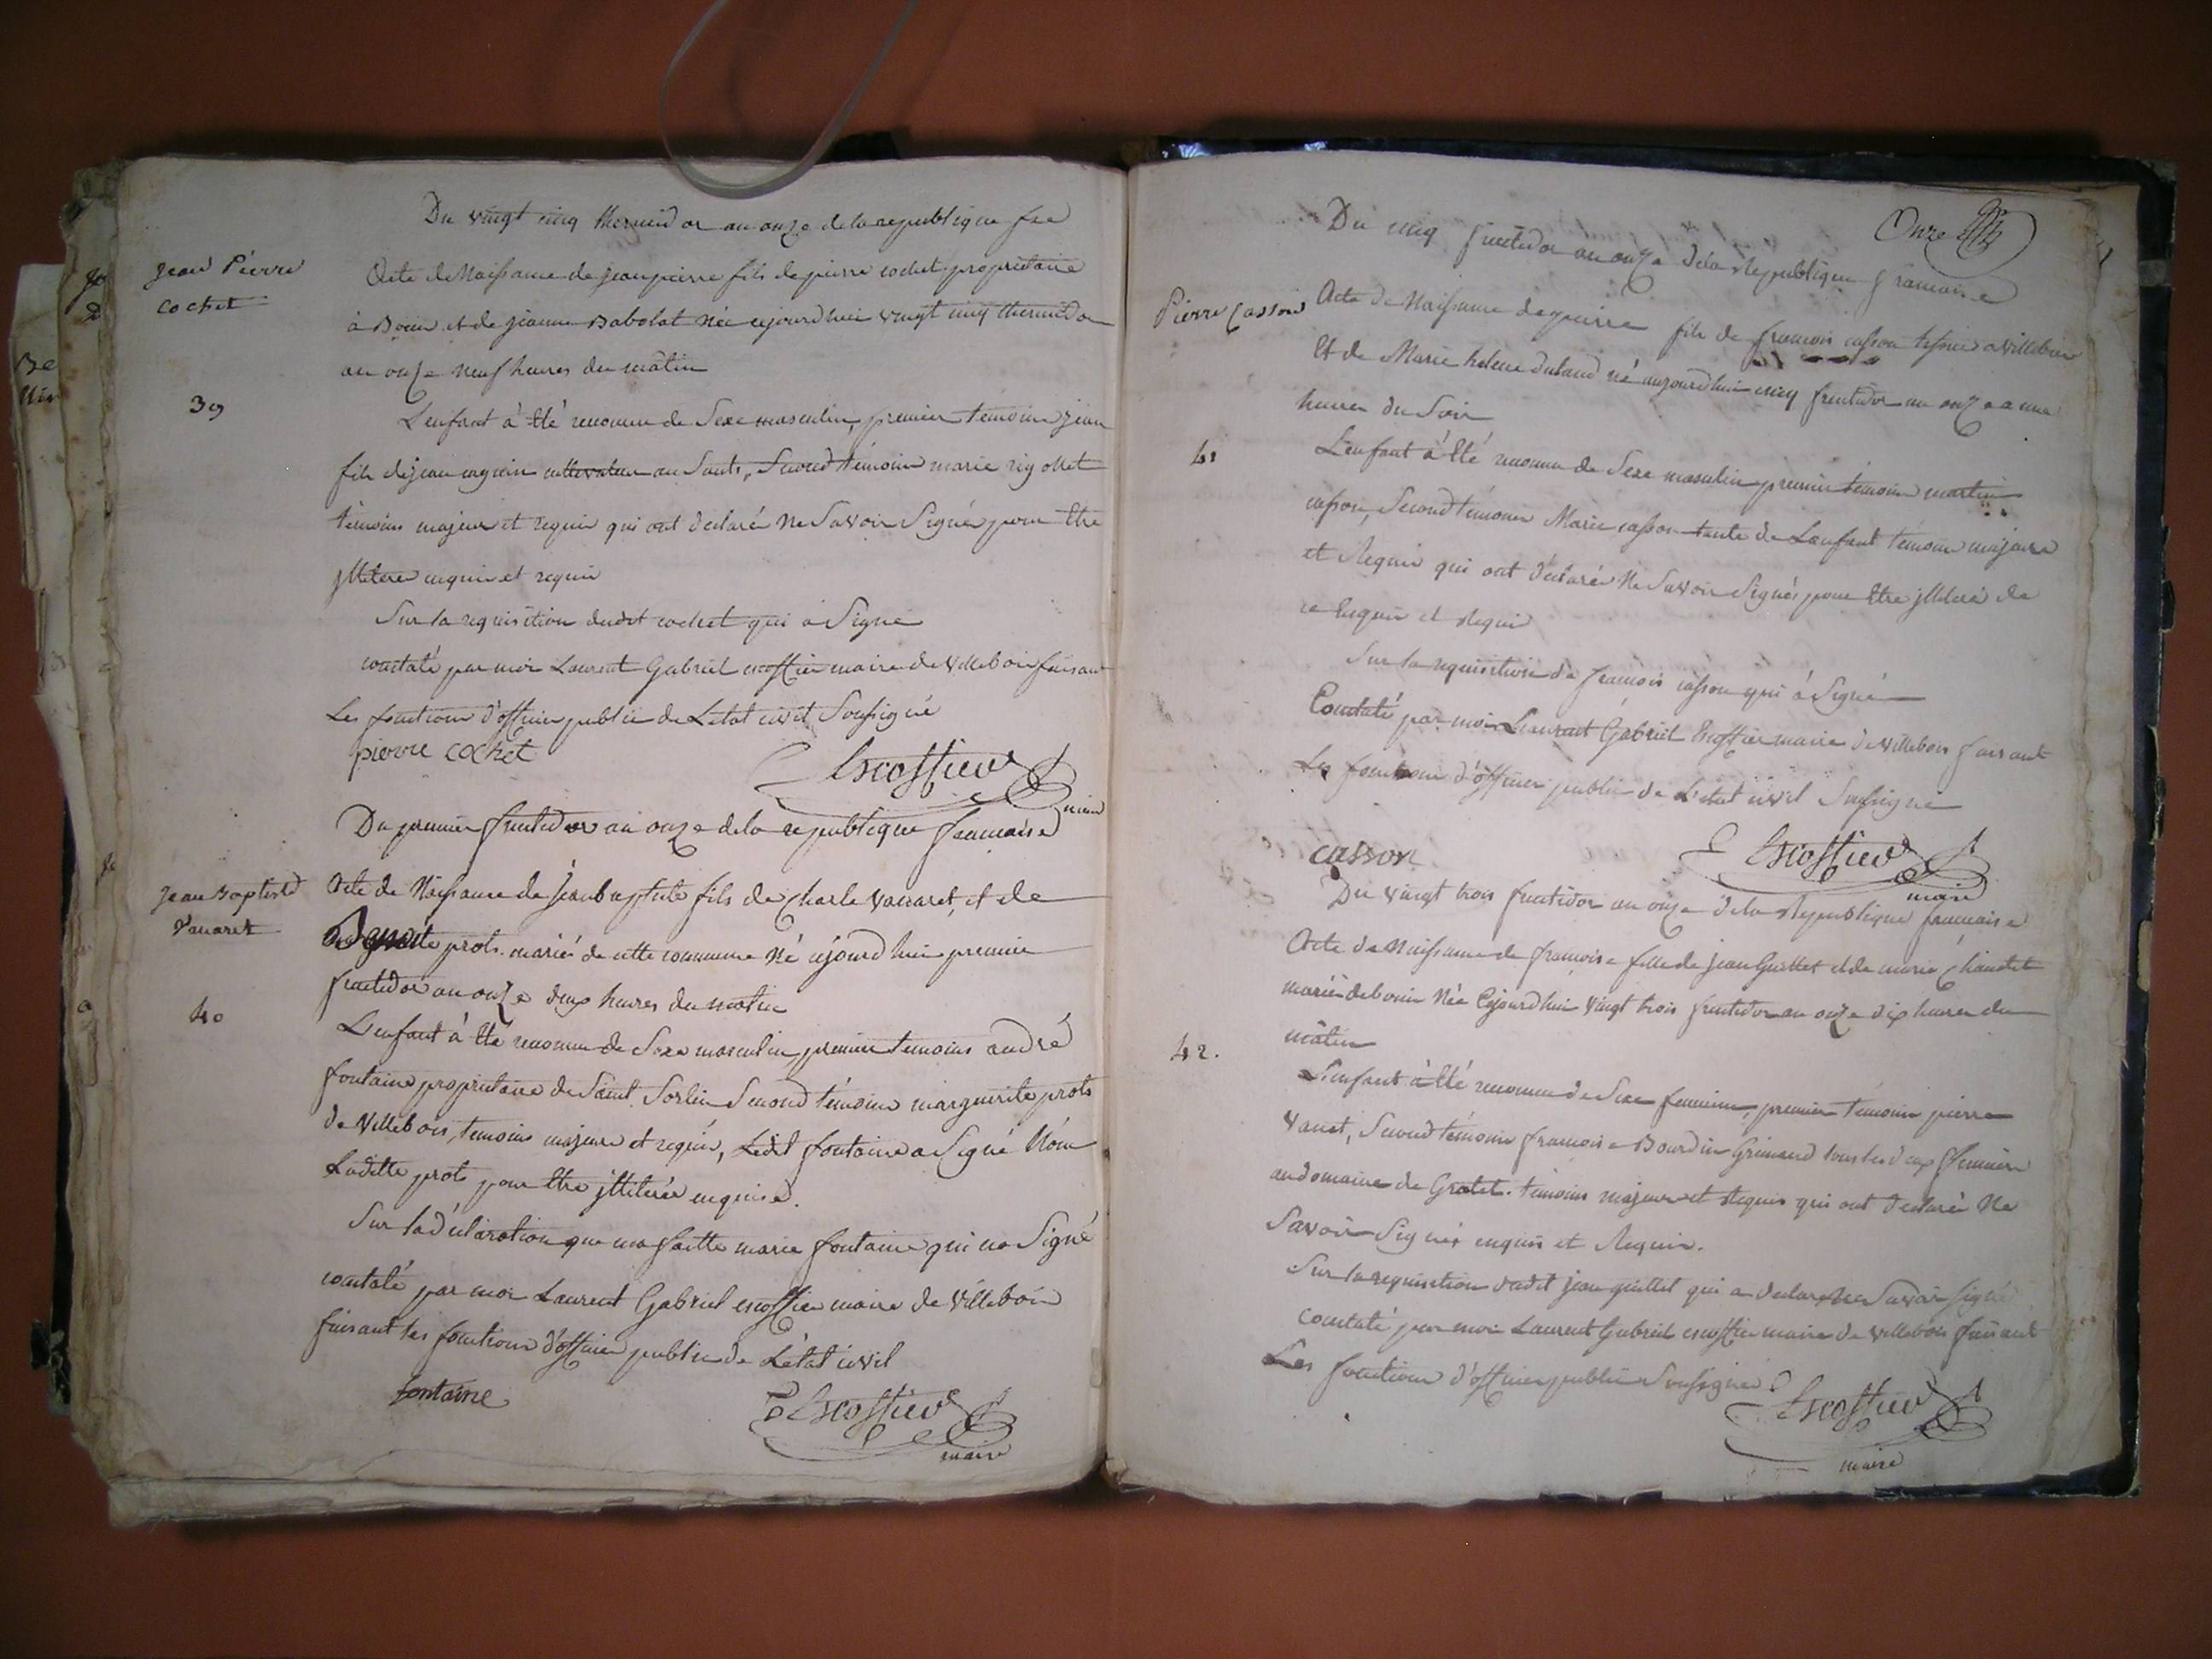 Du vingt cinq thermidor an onze de la republique fse
Jean Pierre
cochet
Acte de Naissance de jean pierre fils de pierre cochet proprietaire
à Bouis et de jeanne Babolat née cejourdhui vingt cinq thermidor
an onze neuf heures du mâtin
39
L'enfant à été reconnu de Sexe masculin, premier témoin jean
fils de jean cultivateur au Sault, Second témoin marie rigollet
témoins majeurs et requis qui ont declaré ne Savoir Signé pour être
jlliteré enquis et requis
Sur la requisition dudit cochet qui à Signé
constaté par moi Laurent Gabriel escoffier maire de Villebois faisant
Les fonctions d'officier public de L'état civil Soussigné
pierre cochet
Escoffier
maire
Du premier fructidor an onze de la republique francaise
Jean Baptiste
Vanaret
Acte de Naissance de Jean baptiste fils de Charle Vanaret, et de
prots. mariés de cette commune Né cejourdhui premier
fructidor an onze deux heures du matin
40
L'enfant à été reconnu de Sexe masculin, premier temoins andré
fontaine proprietaire de Saint Sorlin Second témoin marguerite prots
de Villebois, temoins majeurs et requis, Ledit fontaine a Signé Non
Laditte prots pour être jlliterée enquise.
Sur la déclaration que ma faitte marie fontaine qui na Signé
constaté par moi Laurent Gabriel escoffier maire de Villebois
faisant les fonctions d'officier public de L'état civil
fontaine
Escoffier
maire
Onze
Du cinq fructidor an onze de la Republique francaise
Pierre Casson
Acte de Naissance de pierre fils de francois casson tissier a villebois
Et de Marie helene dulaud né aujourdhui cinq fructidor an onze a une
heures du Soir
41
L'enfant à été reconnu de Sexe masculin premier témoin martin
casson, Second témoin Marie casson tante de L'anfant témoin majeurs
et Requis qui ont déclaré Ne Savoir Signés pour être jlliteré de
ce Enquis et Requis
Sur la requisition de francois casson qui à Signé
Constaté par moi Laurent Gabriel Escoffier maire de Villebois faisant
Les fonctions d'officier public de L'état civil Soussigné
casson
Escoffier
maire
Du Vingt trois fructidor an onze de la Republique francaise
Acte de Naissance de francoise fille de jean Guillet et de marie Chaudet
mariés de bouis Née Cejourdhui Vingt trois fructidor an onze dix heures du
mâtin
42.
L'enfant à été reconnu de Sexe feminin, premier temoin pierre
Vanet, Second témoin francoise Bourdin Grimaud tous les deux fermiers
au domaine de Grotet. temoins majeurs et Requis qui ont declaré Ne
Savoir Signés enquis et Requis.
Sur la requisition dudit jean guillet qui a declaré Ne Savoir Signé
constaté par moi Laurent Gabriel escoffier maire de Villebois faisant
Les fonctions d'officier public Soussigné
Escoffier
maire